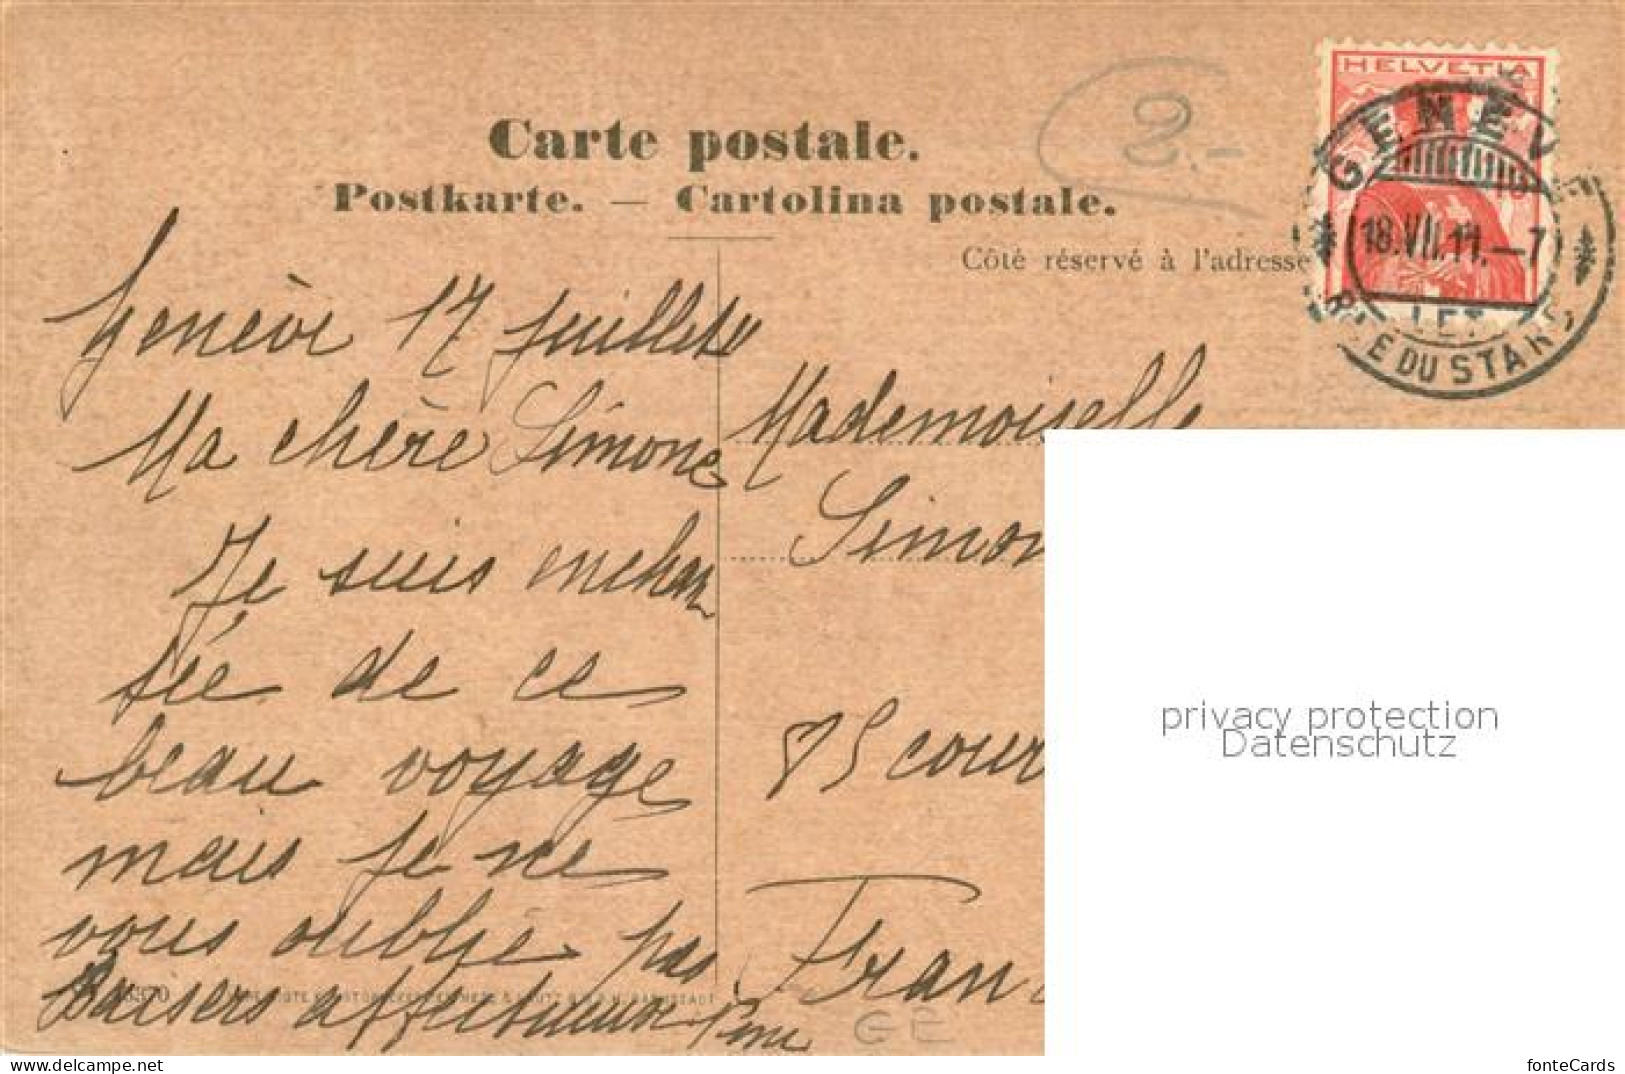 Carte postale.
Postkarte. — Cartolina postale.
Côté réservé à l'adresse
2.-
HELVETIA
GENÈVE
18.VII.11.—7
LET
RUE DU STAND
Genève 17 juillet
Ma chère Simone
Je suis enchan
tée de ce
beau voyage
mais je ne
vous oublie pas
Baisers affectueux
Mademoiselle
Simon
85 cour
Fran
GE
privacy protection
Datenschutz
fonteCards